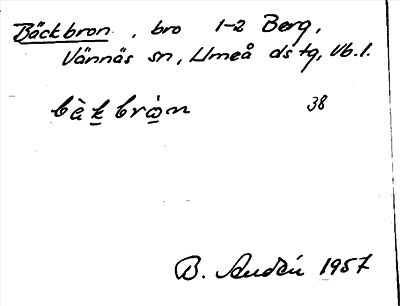 Bäckbron, bro 1-2 Berg,
Vännäs sn, Umeå ds tg, Vb. l.
bàk̲ brò̲n 38
B. 1957